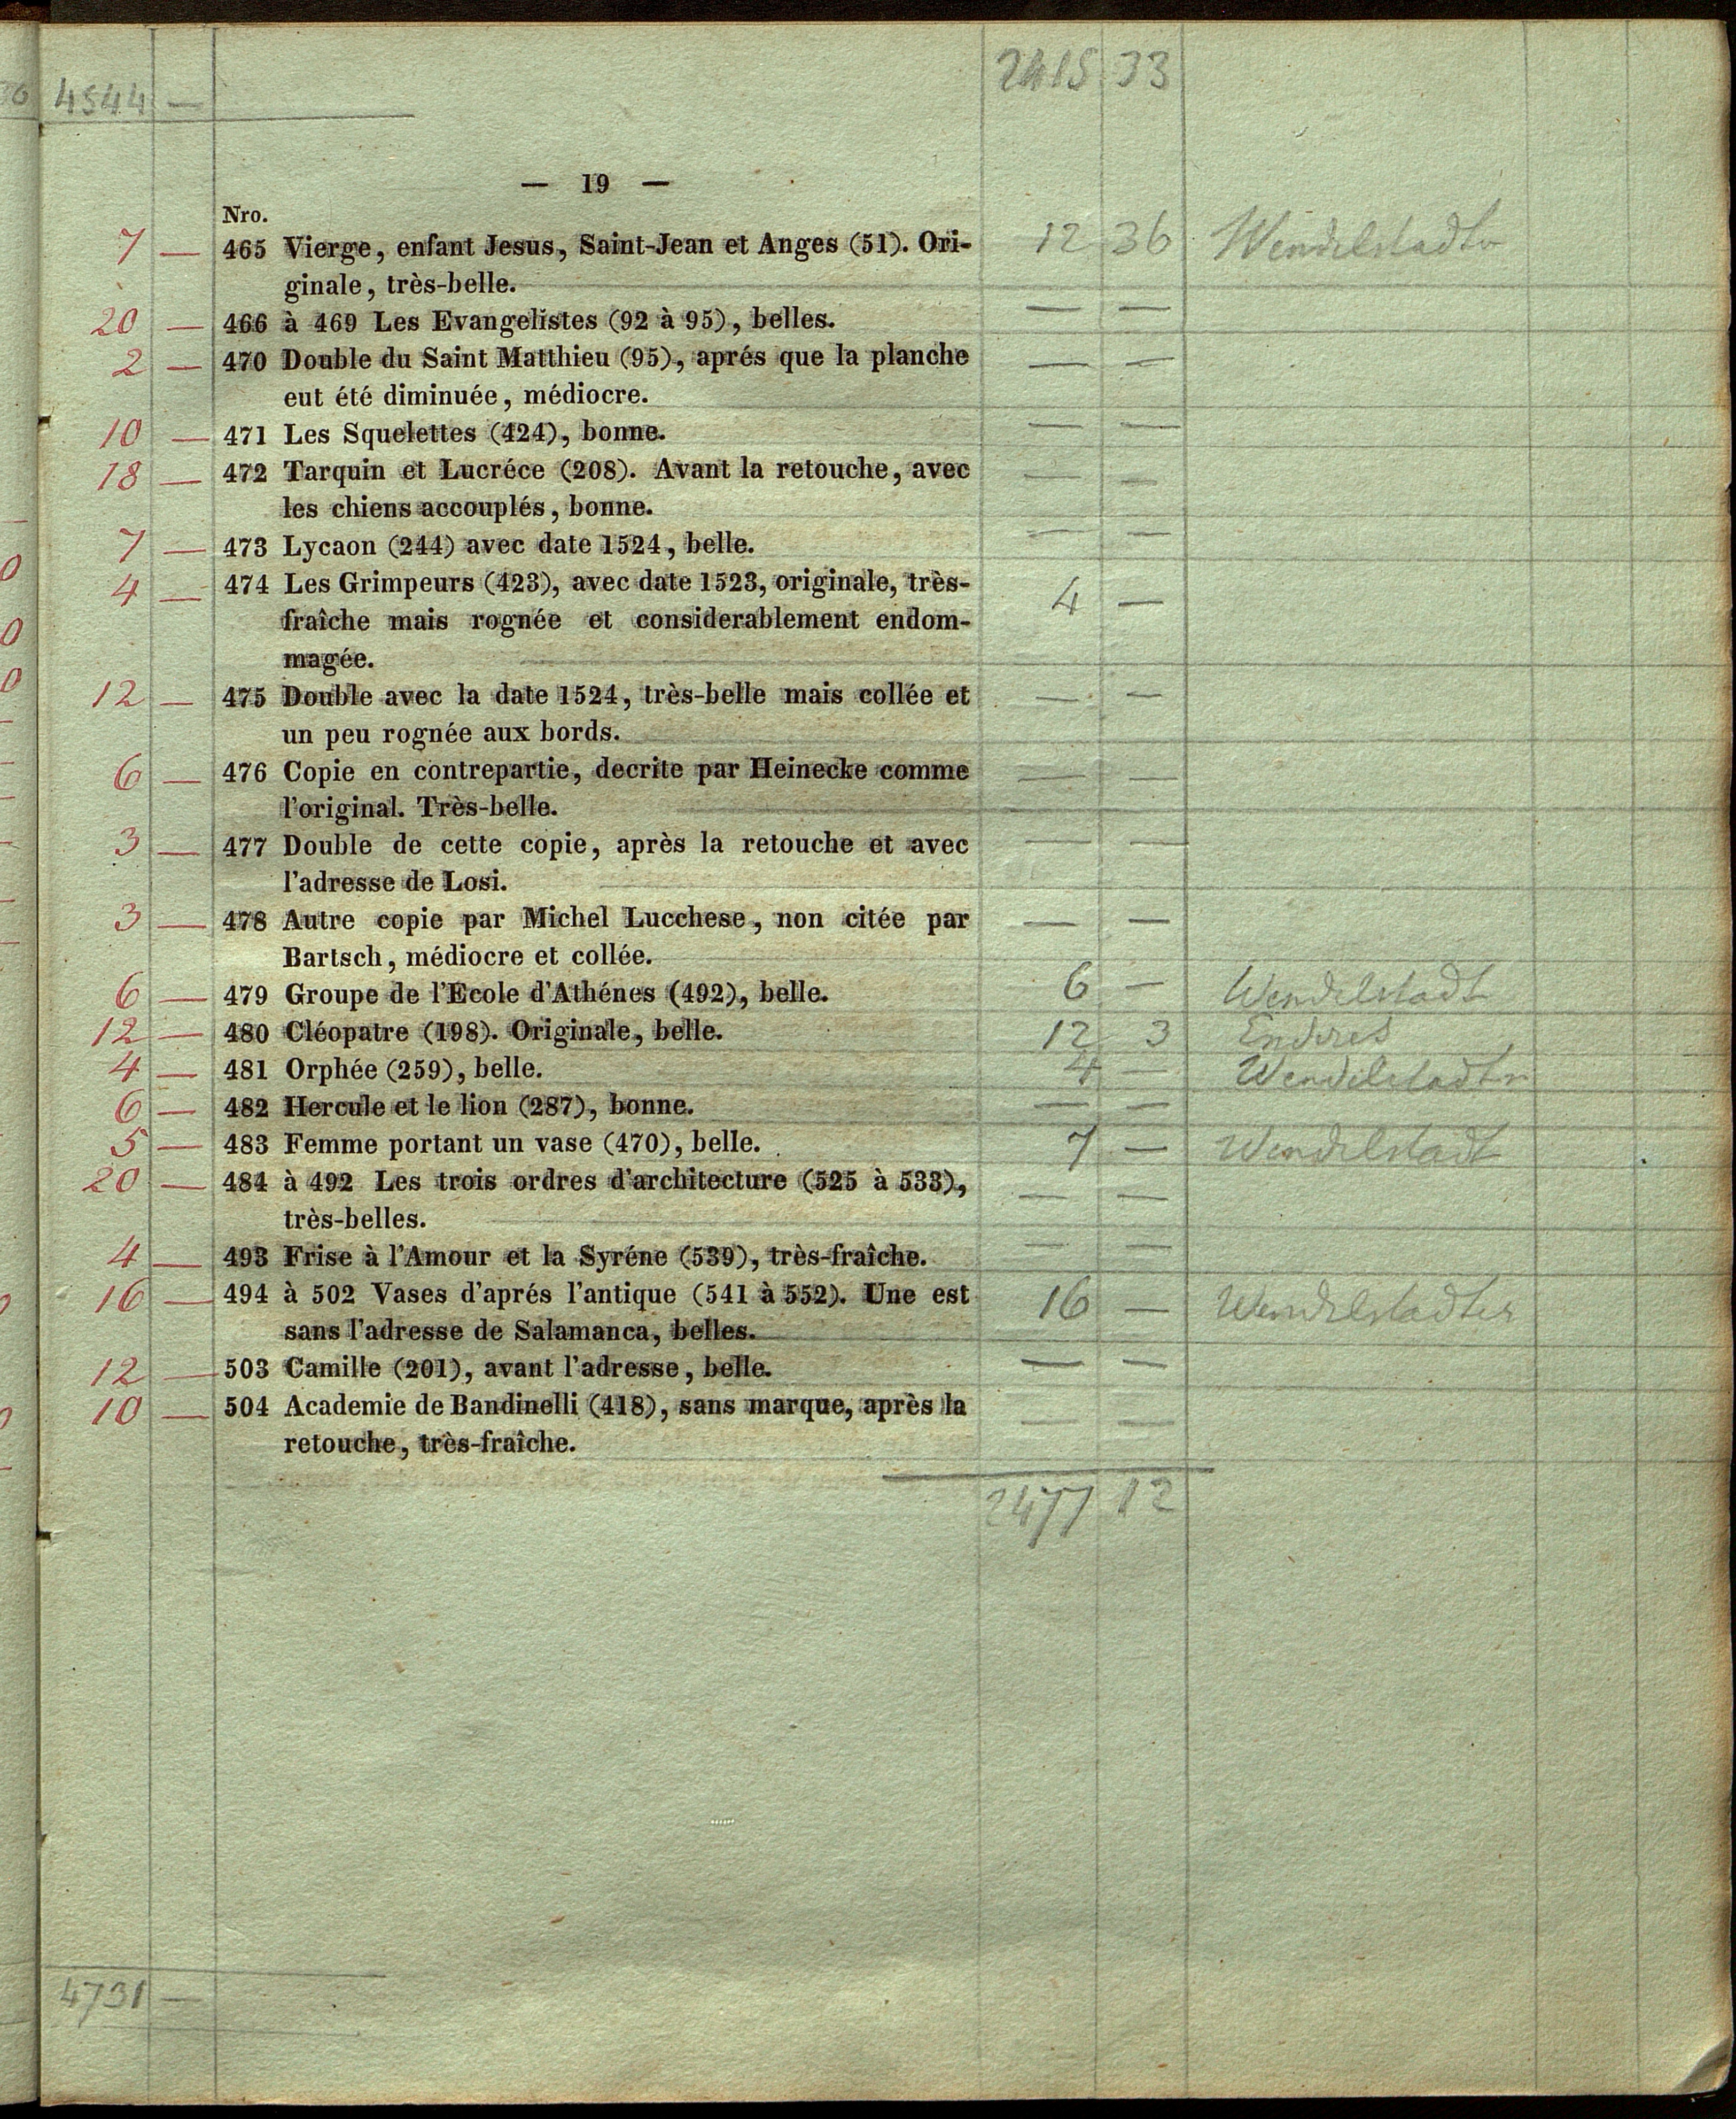 4544 — 2415 33
— 19 —
Nro.
7 — 465 Vierge, enfant Jesus, Saint-Jean et Anges (51). Ori- 12 36 Wendelstadt
ginale, très-belle.
20 — 466 à 469 Les Evangelistes (92 à 95), belles. — —
2 — 470 Double du Saint Matthieu (95), aprés que la planche — —
eut été diminuée, médiocre.
10 — 471 Les Squelettes (424), bonne. — —
18 — 472 Tarquin et Lucréce (208). Avant la retouche, avec — —
les chiens accouplés, bonne.
7 — 473 Lycaon (244) avec date 1524, belle. — —
4 — 474 Les Grimpeurs (423), avec date 1523, originale, très- 4 —
fraîche mais rognée et considerablement endom-
magée.
12 — 475 Double avec la date 1524, très-belle mais collée et — —
un peu rognée aux bords.
6 — 476 Copie en contrepartie, decrite par Heinecke comme — —
l'original. Très-belle.
3 — 477 Double de cette copie, après la retouche et avec — —
l'adresse de Losi.
3 — 478 Autre copie par Michel Lucchese, non citée par — —
Bartsch, médiocre et collée.
6 — 479 Groupe de l'Ecole d'Athénes (492), belle. 6 — Wendelstadt
12 — 480 Cléopatre (198). Originale, belle. 12 3 Endres
4 — 481 Orphée (259), belle. 4 — Wendelstadt
6 — 482 Hercule et le lion (287), bonne. — —
5 — 483 Femme portant un vase (470), belle. 7 — Wendelstadt
20 — 484 à 492 Les trois ordres d'architecture (525 à 533), — —
très-belles.
4 — 493 Frise à l'Amour et la Syréne (539), très-fraîche. — —
16 — 494 à 502 Vases d'aprés l'antique (541 à 552). Une est 16 — Wendelstadt
sans l'adresse de Salamanca, belles.
12 — 503 Camille (201), avant l'adresse, belle. — —
10 — 504 Academie de Bandinelli (418), sans marque, après la — —
retouche, très-fraîche.
2477 12
4731 —